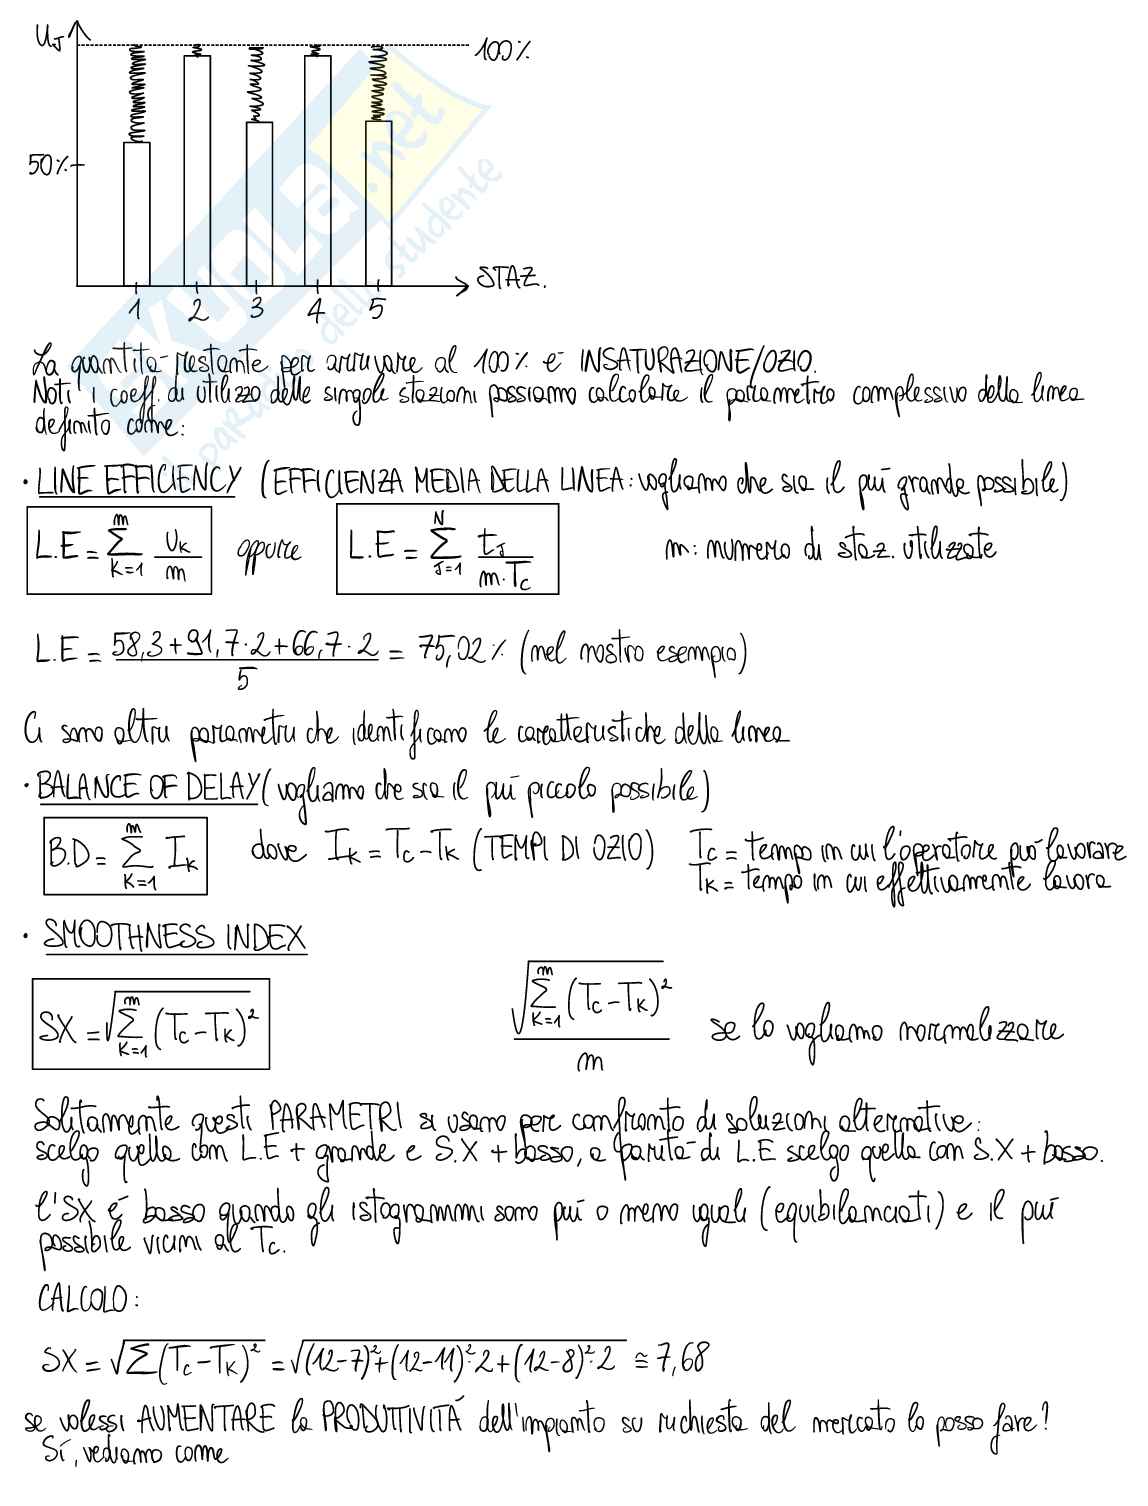 U_J
100%
50%
STAZ.
1 2 3 4 5
SKUOLA.net
il paradiso dello studente
La quantità restante per arrivare al 100% è INSATURAZIONE/OZIO.
Noti i coeff. di utilizzo delle singole stazioni possiamo calcolare il parametro complessivo della linea
definito come:
· LINE EFFICIENCY (EFFICIENZA MEDIA DELLA LINEA: vogliamo che sia il più grande possibile)
L.E = ∑_{K=1}^{m} U_K / m oppure L.E = ∑_{J=1}^{N} t_J / (m·T_C) m: numero di staz. utilizzate
L.E = (58,3+91,7·2+66,7·2) / 5 = 75,02% (nel nostro esempio)
Ci sono altri parametri che identificano le caratteristiche della linea
· BALANCE OF DELAY (vogliamo che sia il più piccolo possibile)
B.D = ∑_{K=1}^{m} I_K dove I_K = T_C - T_K (TEMPI DI OZIO) T_C = tempo in cui l'operatore può lavorare
T_K = tempo in cui effettivamente lavora
· SMOOTHNESS INDEX
SX = √(∑_{K=1}^{m} (T_C - T_K)²) √(∑_{K=1}^{m} (T_C - T_K)²) / m se lo vogliamo normalizzare
Solitamente questi PARAMETRI si usano per confronto di soluzioni alternative:
scelgo quella con L.E + grande e S.X + basso, a parità di L.E scelgo quella con S.X + basso.
l'SX è basso quando gli istogrammi sono più o meno uguali (equibilanciati) e il più
possibile vicini al T_C.
CALCOLO:
SX = √(∑(T_C - T_K)²) = √((12-7)²+(12-11)²·2+(12-8)²·2) ≅ 7,68
se volessi AUMENTARE la PRODUTTIVITÀ dell'impianto su richiesta del mercato lo posso fare?
Sì, vediamo come